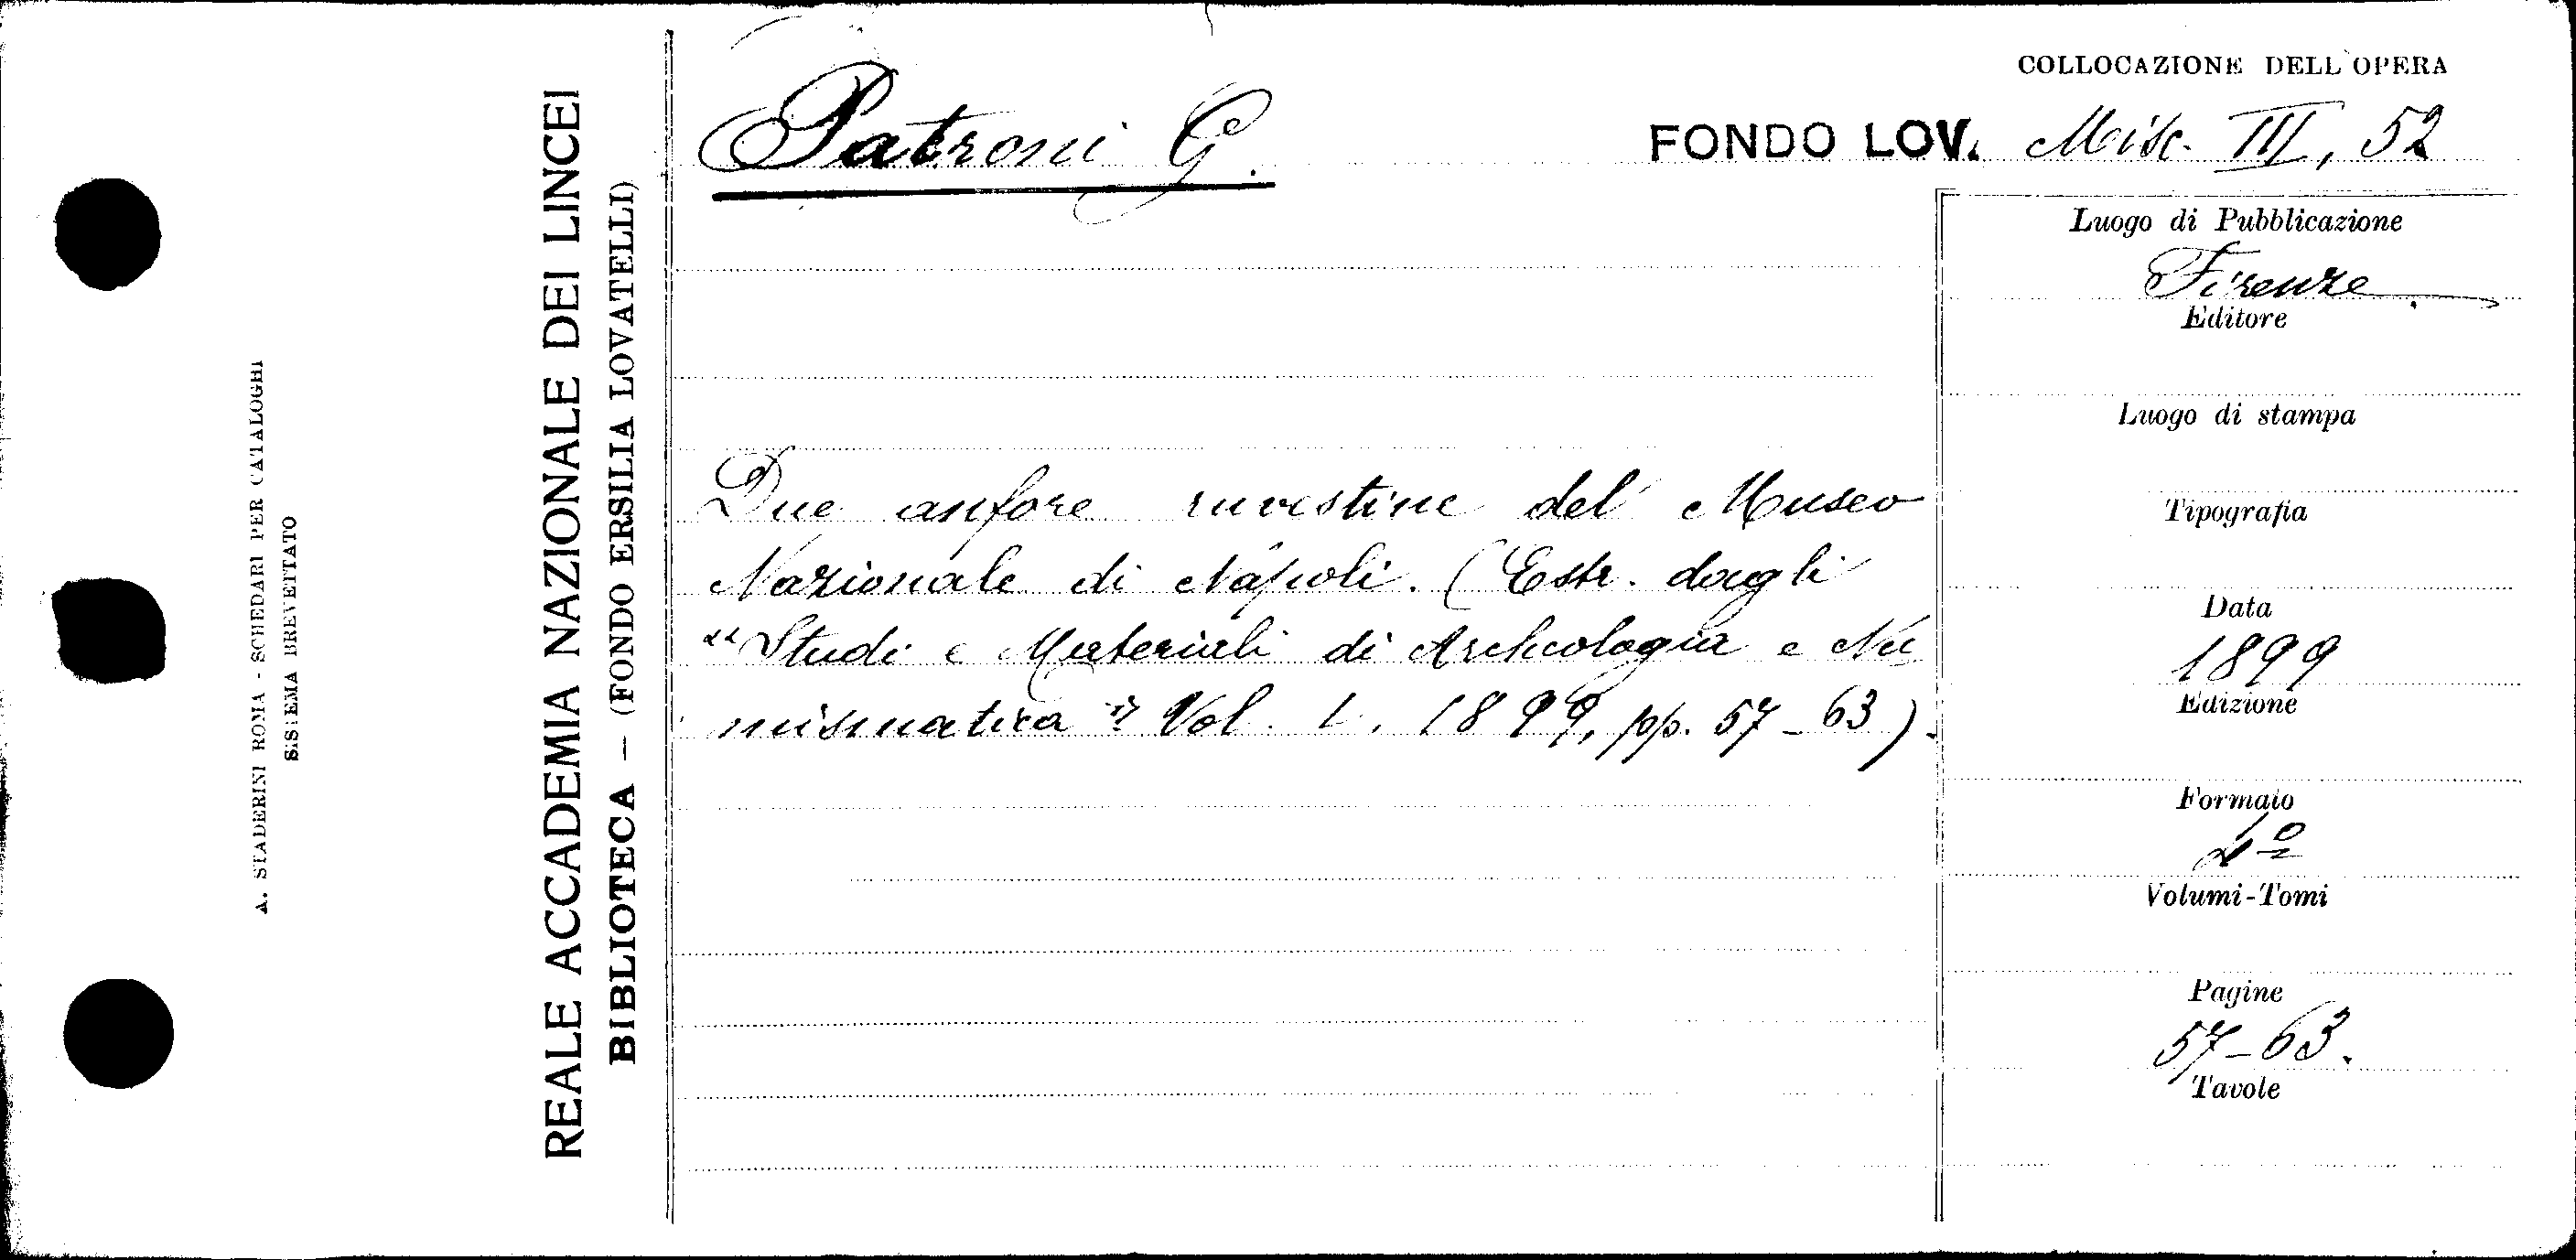 COLLOCAZIONE DELL'OPERA
Patroni G.
FONDO LOV. Misc. III, 52
REALE ACCADEMIA NAZIONALE DEI LINCEI
BIBLIOTECA – (FONDO ERSILIA LOVATELLI)
A. STADERINI ROMA - SCHEDARI PER CATALOGHI
SISTEMA BREVETTATO
Due anfore ruvestine del Museo
Nazionale di Napoli. (Estr. dagli
"Studi e Materiali di Archeologia e Nu
mismatica" Vol. I, 1899, pp. 57-63).
Luogo di Pubblicazione
Firenze
Editore
Luogo di stampa
Tipografia
Data
1899
Edizione
Formato
4º
Volumi-Tomi
Pagine
57-63.
Tavole